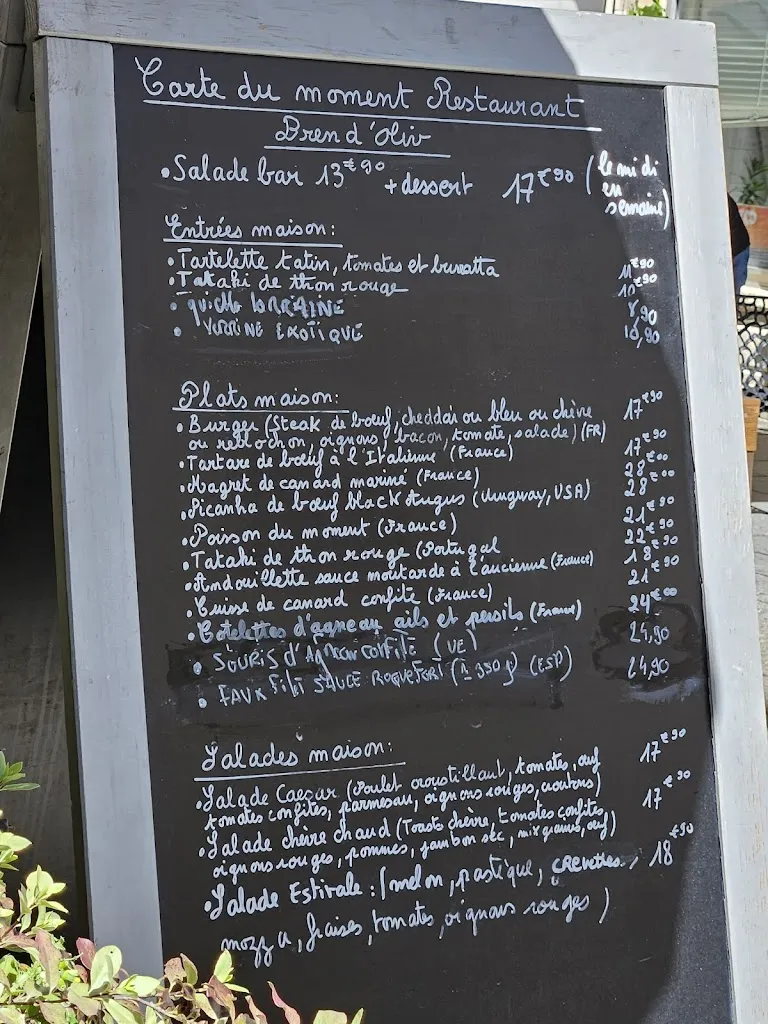 Carte du moment Restaurant
Bren d'oliv
• Salade bar 13€90 + dessert 17€90 (le midi en semaine)
Entrées maison:
• Tartelette tatin, tomates et burratta 11€90
• Tataki de thon rouge 10€90
• QUICHE LORRAINE 8,90
• VERRINE EXOTIQUE 10,90
Plats maison:
• Burger (Steak de bœuf, cheddar ou bleu ou chèvre 17€90
ou reblochon, oignons, bacon, tomate, salade) (FR)
• Tartare de bœuf à l'Italienne (France) 17€90
• Magret de canard mariné (France) 28€00
• Picanha de bœuf black Angus (Uruguay, USA) 28€00
• Poisson du moment (France) 21€90
• Tataki de thon rouge (Portugal 22€90
• Andouillette sauce moutarde à l'ancienne (France) 18€90
• Cuisse de canard confite (France) 21€90
• Cotelettes d'agneau ails et persils (France) 24€00
• SOURIS d'AGNEAU CONFITE (UE) 24,90
• FAUX FILET SAUCE ROQUEFORT (± 350g) (ESP) 24,90
Salades maison:
• Salade Caesar (Poulet croustillant, tomates, œuf 17€90
tomates confites, parmesan, oignons rouges, croutons)
• Salade chèvre chaud (Toasts chèvre, tomates confites, 17€90
oignons rouges, pommes, jambon sec, mix graines, œuf)
• Salade Estivale : (melon, pastèque, crevettes, 18€90
mozza, fraises, tomates, oignons rouges)